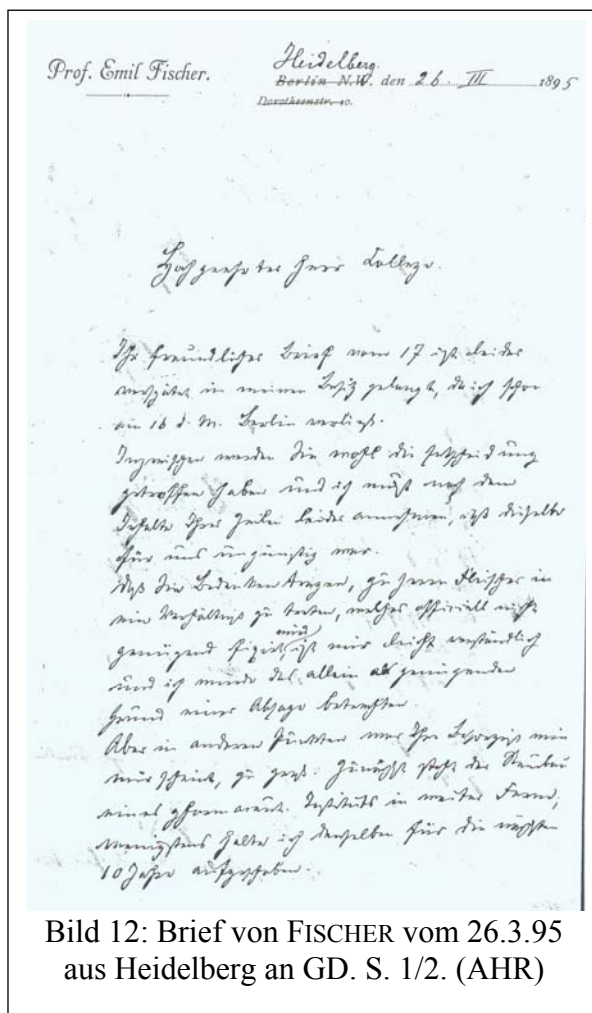 Prof. Emil Fischer.
Heidelberg.
Berlin N.W. den 26. III 1895
Dorotheenstr. 10.
Hochgeehrter Herr College.
Ihr freundlicher Brief vom 17 ist leider
verspätet in meinen Besitz gelangt, da ich schon
am 16 d. M. Berlin verließ.
Inzwischen werden Sie wohl die Entscheidung
getroffen haben und ich muß nach dem
Inhalte Ihrer Zeilen leider annehmen, daß dieselbe
für uns ungünstig war.
Daß Sie Bedenken tragen, zu Herrn Fleischer in
ein Verhältniß zu treten, welches officiell nicht
genügend fixirt wird, ist mir leicht verständlich
und ich würde das allein als genügenden
Grund einer Absage betrachten.
Aber in anderen Punkten war Ihre Besorgniß wie
mir scheint, zu groß. Zunächst steht der Neubau
eines pharmaceut. Instituts in weiter Ferne,
wenigstens halte ich denselben für die nächsten
10 Jahre aufgeschoben.
Bild 12: Brief von FISCHER vom 26.3.95
aus Heidelberg an GD. S. 1/2. (AHR)